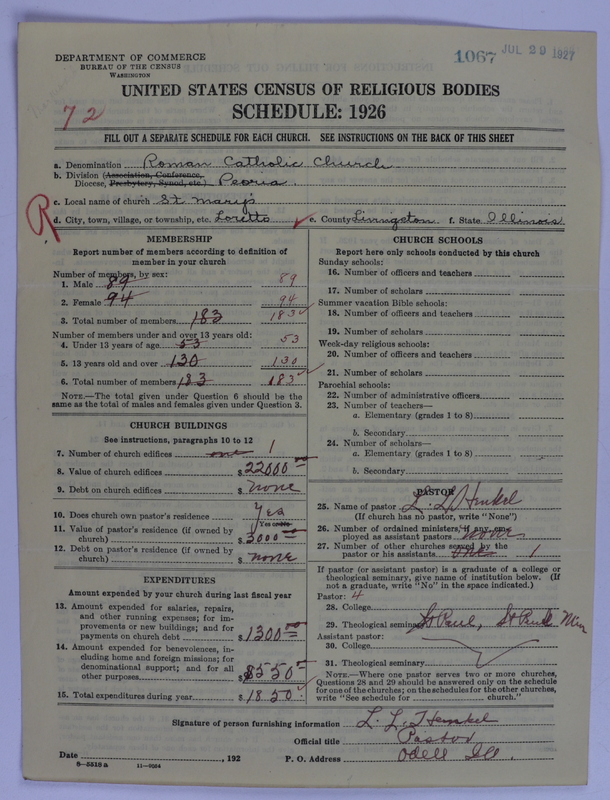 DEPARTMENT OF COMMERCE
BUREAU OF THE CENSUS
WASHINGTON
1067 JUL 29 1927
UNITED STATES CENSUS OF RELIGIOUS BODIES
SCHEDULE: 1926
72
FILL OUT A SEPARATE SCHEDULE FOR EACH CHURCH. SEE INSTRUCTIONS ON THE BACK OF THIS SHEET
a. Denomination Roman Catholic Church
b. Division (Association, Conference,
Diocese, Presbytery, Synod, etc.) Peoria.
R
c. Local name of church St Marys
d. City, town, village, or township, etc. Loretto e. County Livingston f. State Illinois
MEMBERSHIP
Report number of members according to definition of
member in your church
Number of members, by sex:
1. Male 89 89
2. Female 94 94
3. Total number of members 183 183
Number of members under and over 13 years old:
4. Under 13 years of age 53 53
5. 13 years old and over 130 130
6. Total number of members 183 183
NOTE.—The total given under Question 6 should be the
same as the total of males and females given under Question 3.
CHURCH BUILDINGS
See instructions, paragraphs 10 to 12
7. Number of church edifices one 1
8. Value of church edifices $22000 00
9. Debt on church edifices $ none
10. Does church own pastor's residence Yea
Yes or No
11. Value of pastor's residence (if owned by
church) $3000 00
12. Debt on pastor's residence (if owned by
church) $ none
EXPENDITURES
Amount expended by your church during last fiscal year
13. Amount expended for salaries, repairs,
and other running expenses; for im-
provements or new buildings; and for
payments on church debt $1300 00
14. Amount expended for benevolences, in-
cluding home and foreign missions; for
denominational support; and for all
other purposes $550 00
15. Total expenditures during year $1850.
CHURCH SCHOOLS
Report here only schools conducted by this church
Sunday schools:
16. Number of officers and teachers
17. Number of scholars
Summer vacation Bible schools:
18. Number of officers and teachers
19. Number of scholars
Week-day religious schools:
20. Number of officers and teachers
21. Number of scholars
Parochial schools:
22. Number of administrative officers
23. Number of teachers—
a. Elementary (grades 1 to 8)
b. Secondary
24. Number of scholars—
a. Elementary (grades 1 to 8)
b. Secondary
PASTOR
25. Name of pastor L. L. Henkel
(If church has no pastor, write "None")
26. Number of ordained ministers, if any, em-
ployed as assistant pastors none
27. Number of other churches served by the
pastor or his assistants one 1
If pastor (or assistant pastor) is a graduate of a college or
theological seminary, give name of institution below. (If
not a graduate, write "No" in the space indicated.)
Pastor: 4
28. College
29. Theological seminary St Paul, St Paul Min
Assistant pastor:
30. College
31. Theological seminary
NOTE.—Where one pastor serves two or more churches,
Questions 28 and 29 should be answered only on the schedule
for one of the churches; on the schedules for the other churches,
write "See schedule for church."
Signature of person furnishing information L. L. Henkel
Official title Pastor
Date , 192 P. O. Address Odell Ill.
8—5518 a 11—9034